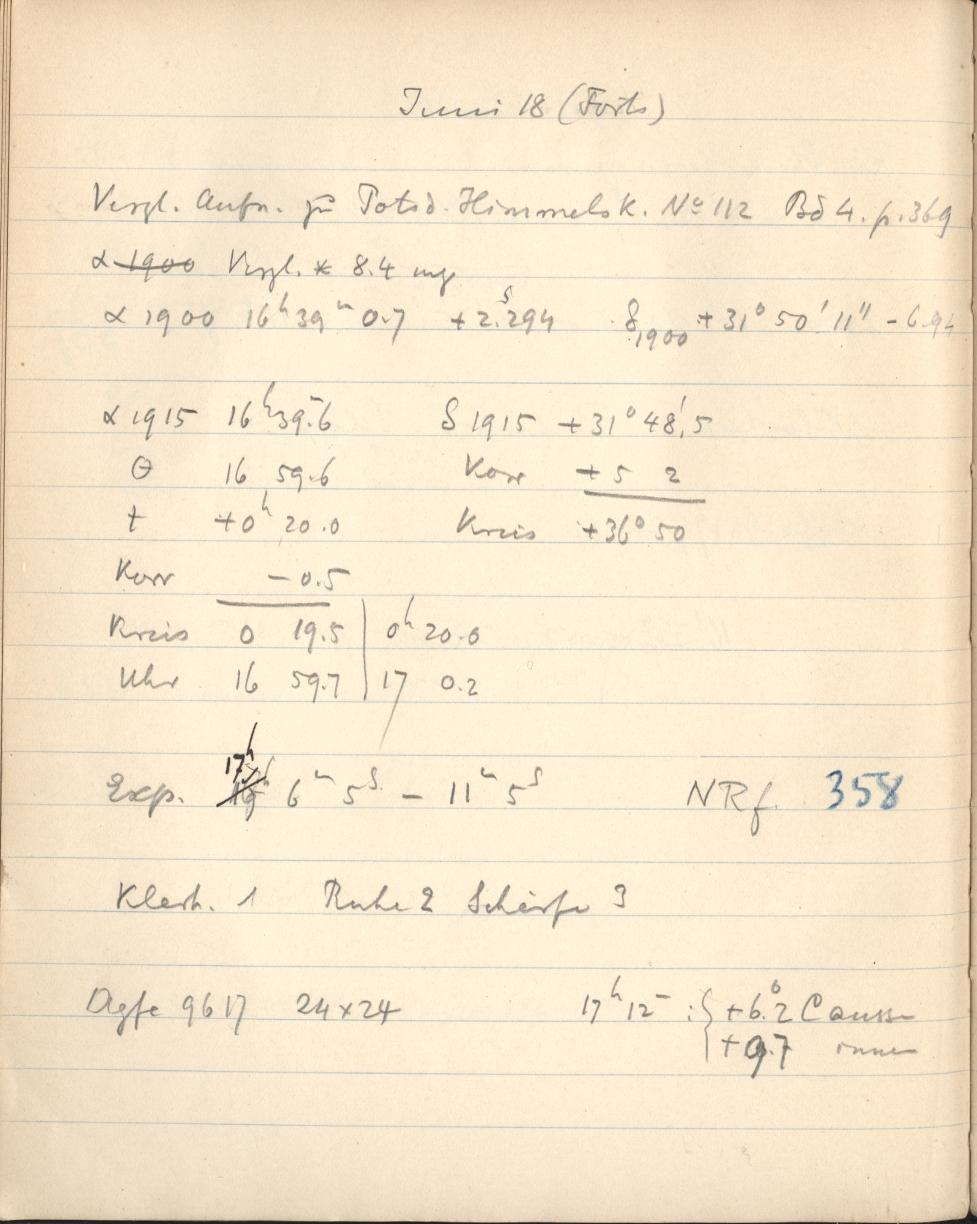 Juni 18 (Forts)
Vergl. Aufn. zu Potsd. Himmelsk. No 112 Bd 4. p. 369
α 1900 Vergl. * 8.4 mg
α 1900 16h 39m 0.7 +2.s294 δ1900 +31° 50' 11" - 6.94
α 1915 16h 39.m6 δ 1915 +31° 48',5
θ 16 59.6 Korr + 5 2
t +0h 20.0 Kreis +36° 50
Korr - 0.5
Kreis 0 19.5 0h 20.0
Uhr 16 59.7 17 0.2
Exp. 17h 6m 5s - 11m 5s NRf. 358
Klarh. 1 Ruhe 2 Schärfe 3
Agfa 9617 24 x 24 17h 12m : +6.°2 C aussen
+9.7 innen